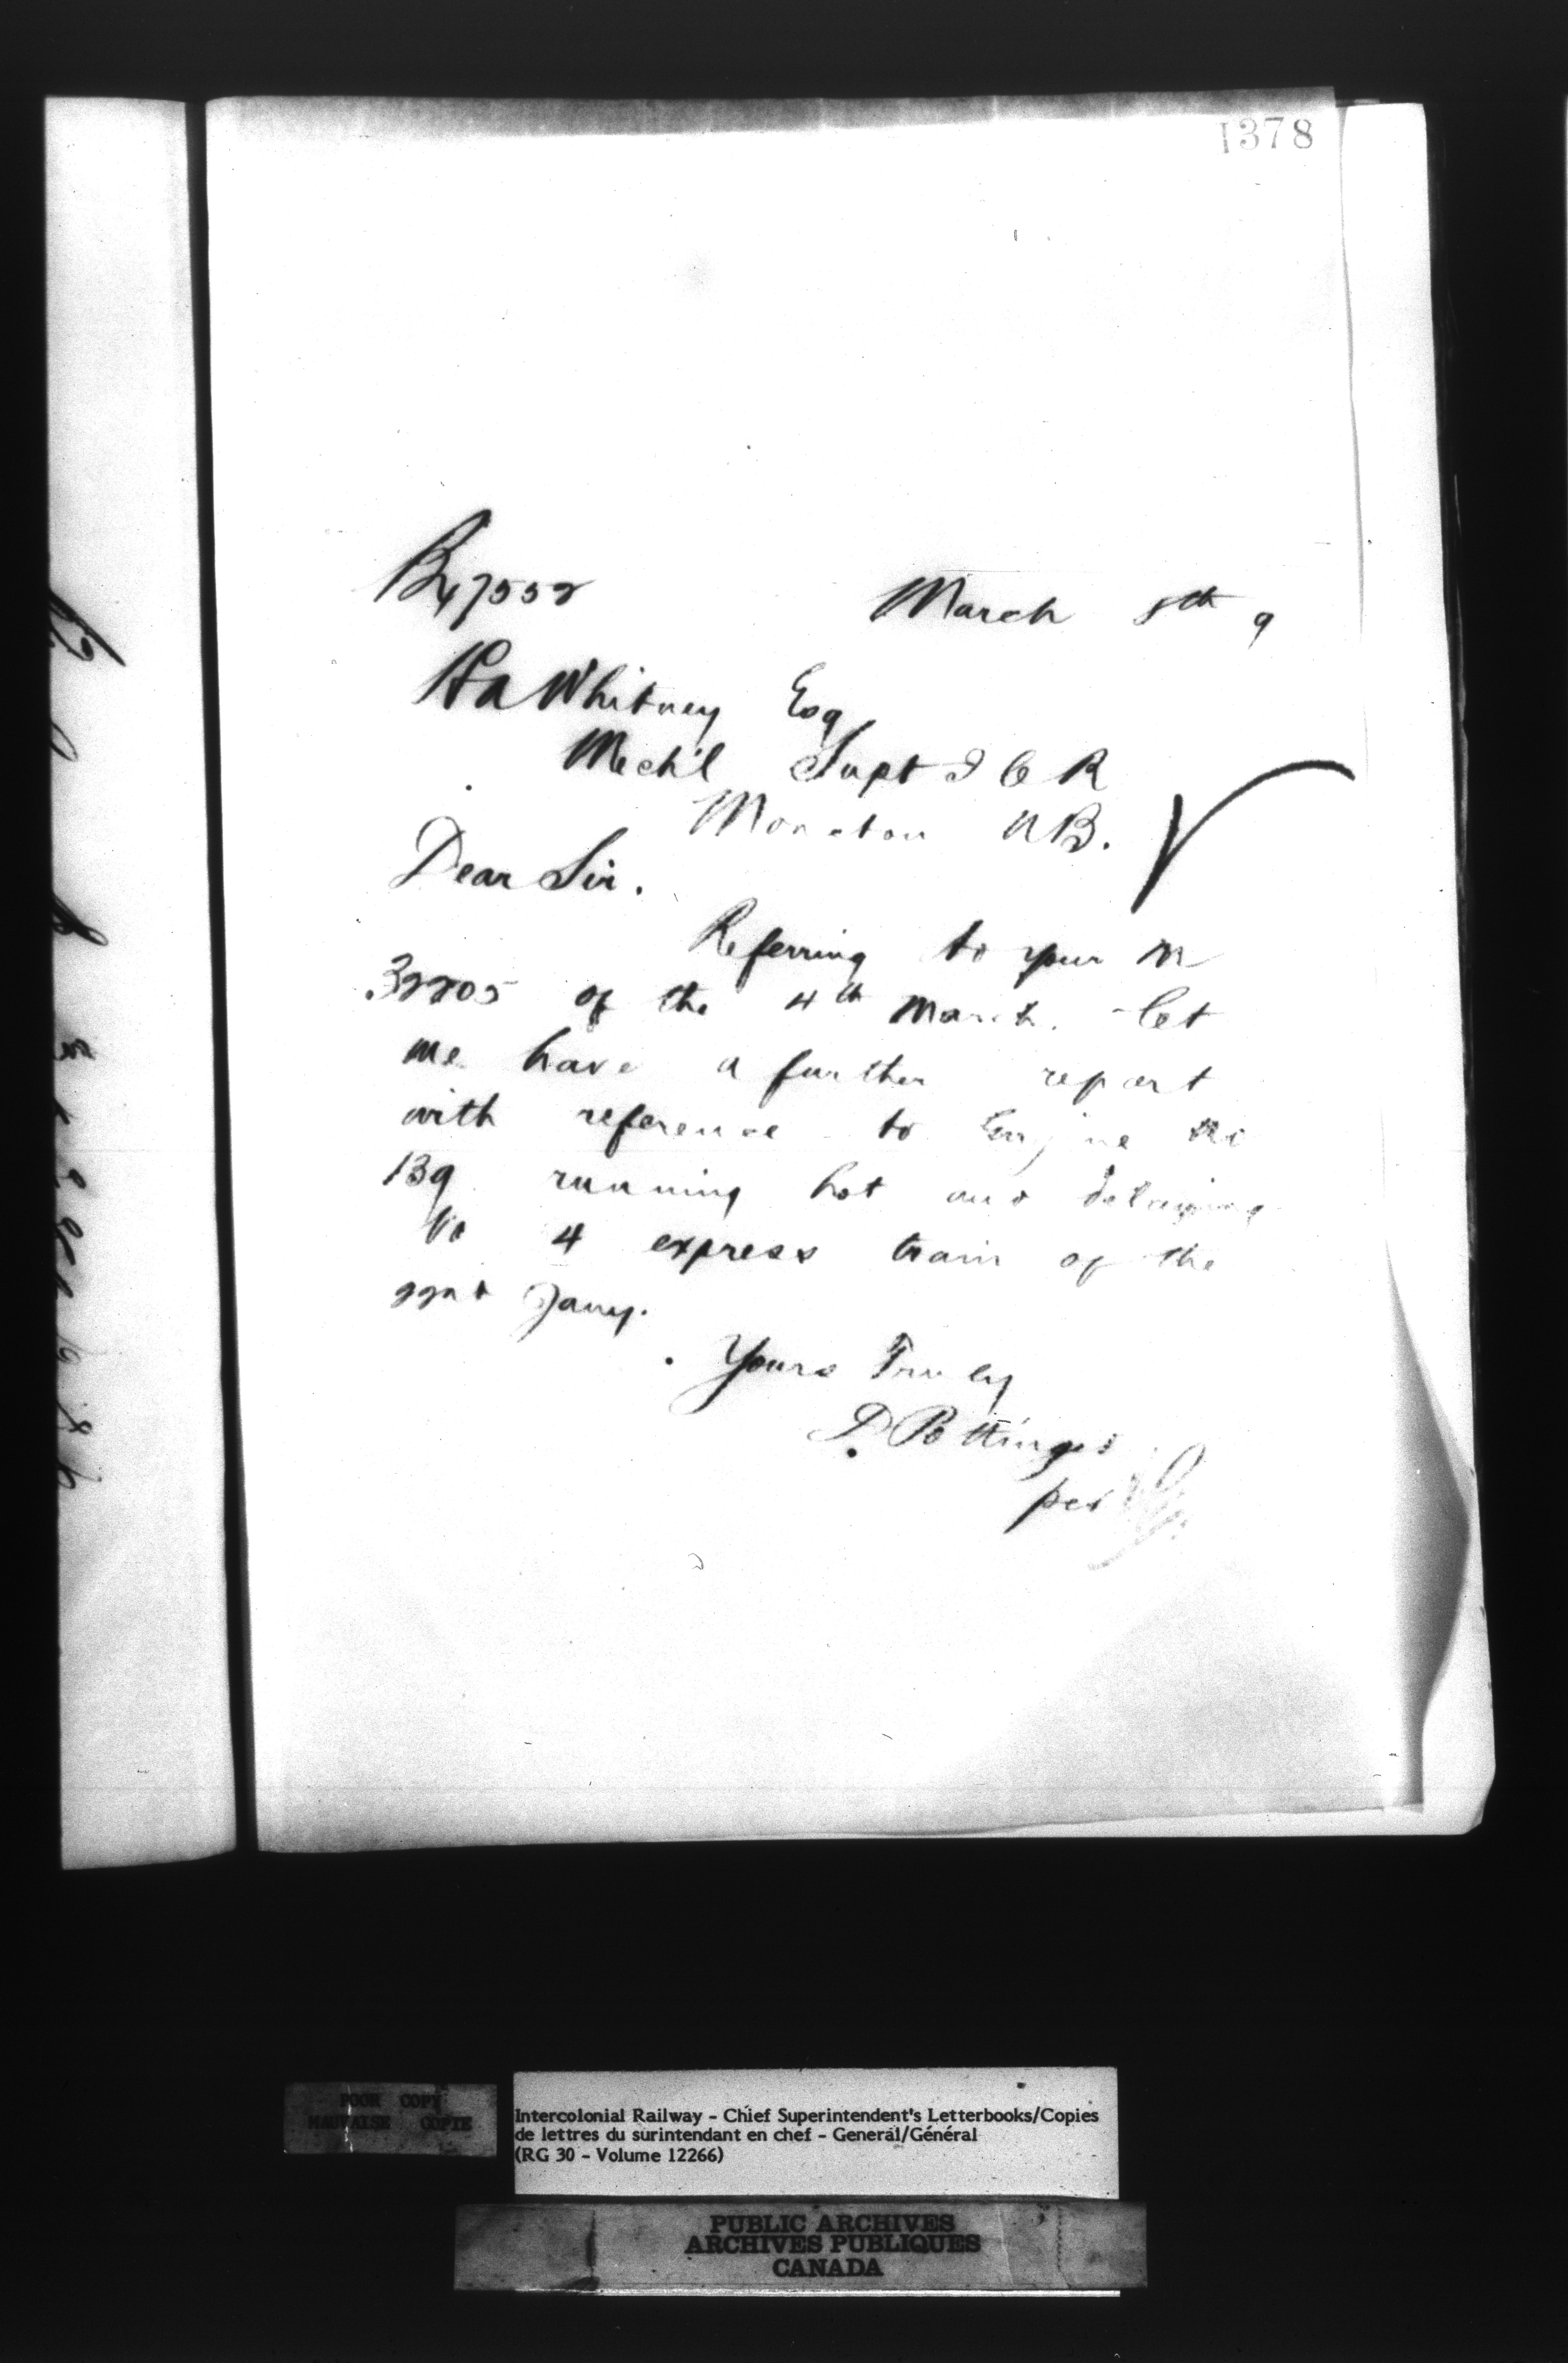 1378
B47552
March 8th 9
H A Whitney Esq
Mech'l Supt I C R
Moncton N B.
Dear Sir.
Referring to your M
32205 of the 4th March. let
me have a further report
with reference to Engine No
139 running hot and delaying
No 4 express train of the
22nd Jany.
Yours Truly
D. Pottinger
per
POOR COPY
MAUVAISE COPIE
Intercolonial Railway - Chief Superintendent's Letterbooks/Copies
de lettres du surintendant en chef - General/Général
(RG 30 - Volume 12266)
PUBLIC ARCHIVES
ARCHIVES PUBLIQUES
CANADA